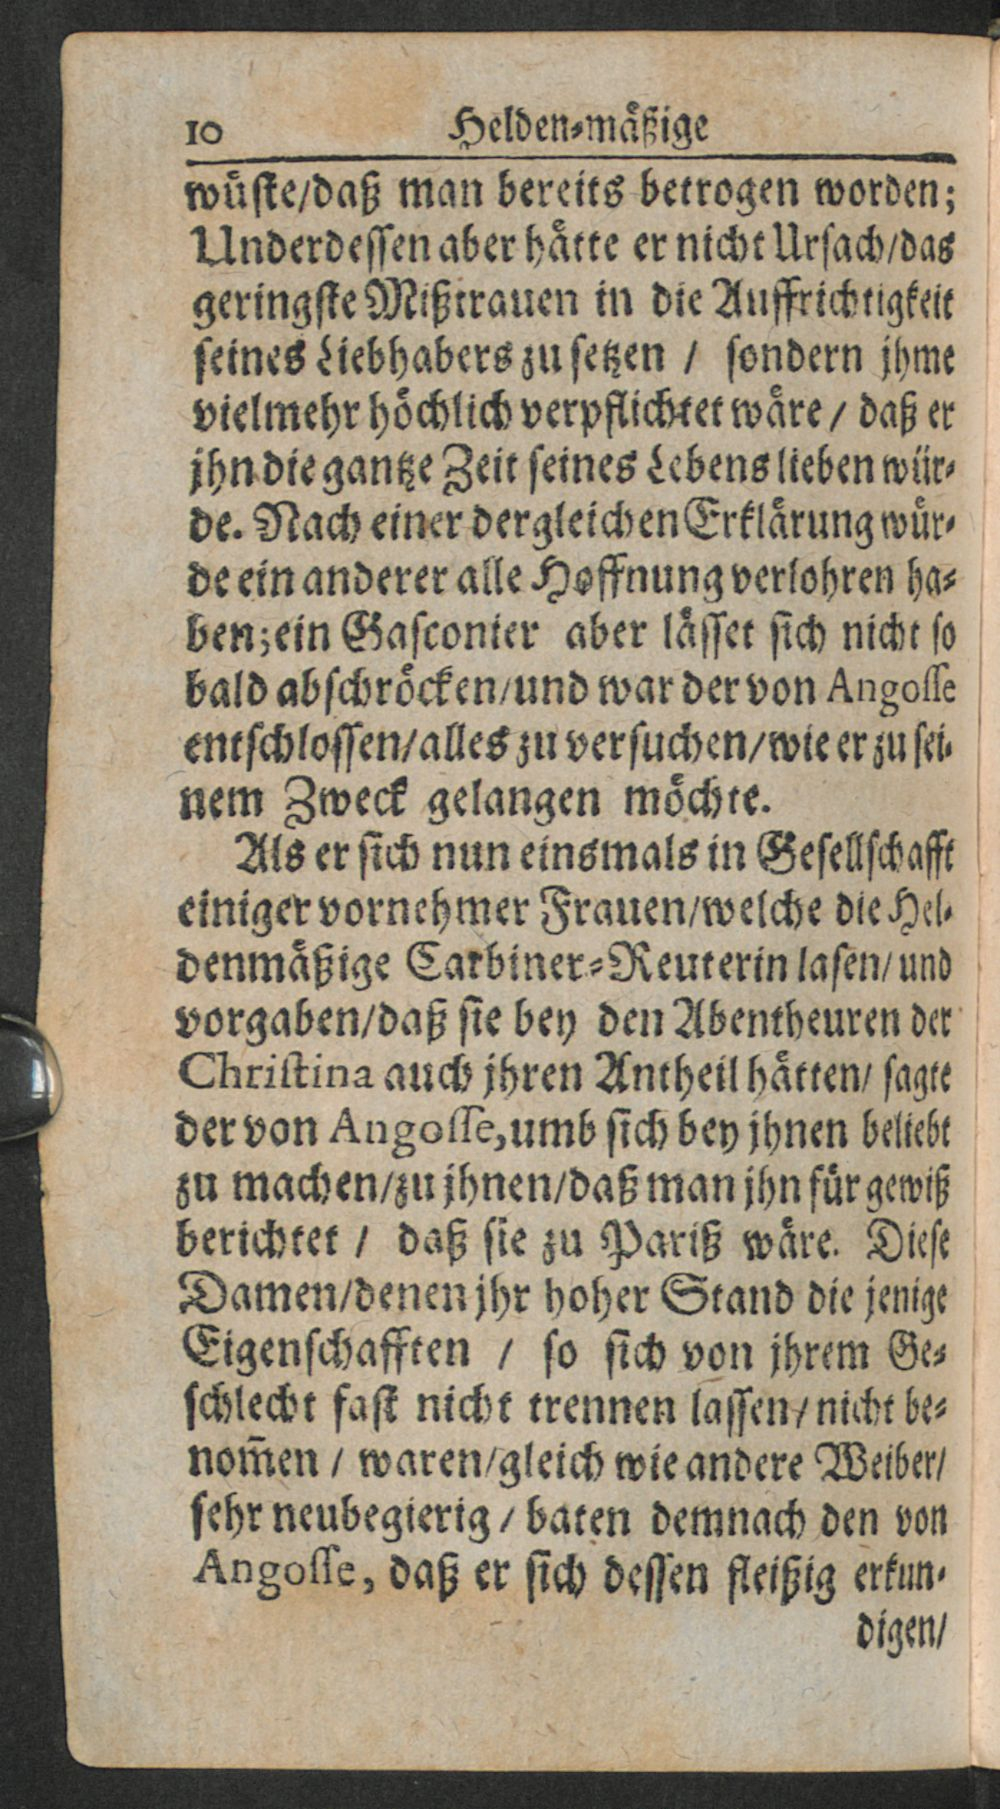 10 Helden-mäßige
wüste/daß man bereits betrogen worden;
Underdessen aber hätte er nicht Ursach/das
geringste Mißtrauen in die Auffrichtigkeit
seines Liebhabers zu setzen / sondern jhme
vielmehr höchlich verpflichtet wäre / daß er
jhn die gantze Zeit seines Lebens lieben wür-
de. Nach einer dergleichen Erklärung wür-
de ein anderer alle Hoffnung verlohren ha-
ben; ein Gasconier aber lässet sich nicht so
bald abschröcken/und war der von Angosse
entschlossen/alles zu versuchen/wie er zu sei-
nem Zweck gelangen möchte.
Als er sich nun einsmals in Gesellschafft
einiger vornehmer Frauen/welche die Hel-
denmäßige Carbiner-Reuterin lasen/ und
vorgaben/daß sie bey den Abentheuren der
Christina auch jhren Antheil hätten/ sagte
der von Angosse, umb sich bey jhnen beliebt
zu machen/zu jhnen/daß man jhn für gewiß
berichtet / daß sie zu Pariß wäre. Diese
Damen/denen jhr hoher Stand die jenige
Eigenschafften / so sich von jhrem Ge-
schlecht fast nicht trennen lassen/ nicht be-
nom̃en / waren/gleich wie andere Weiber/
sehr neubegierig / baten demnach den von
Angosse, daß er sich dessen fleißig erkun-
digen/